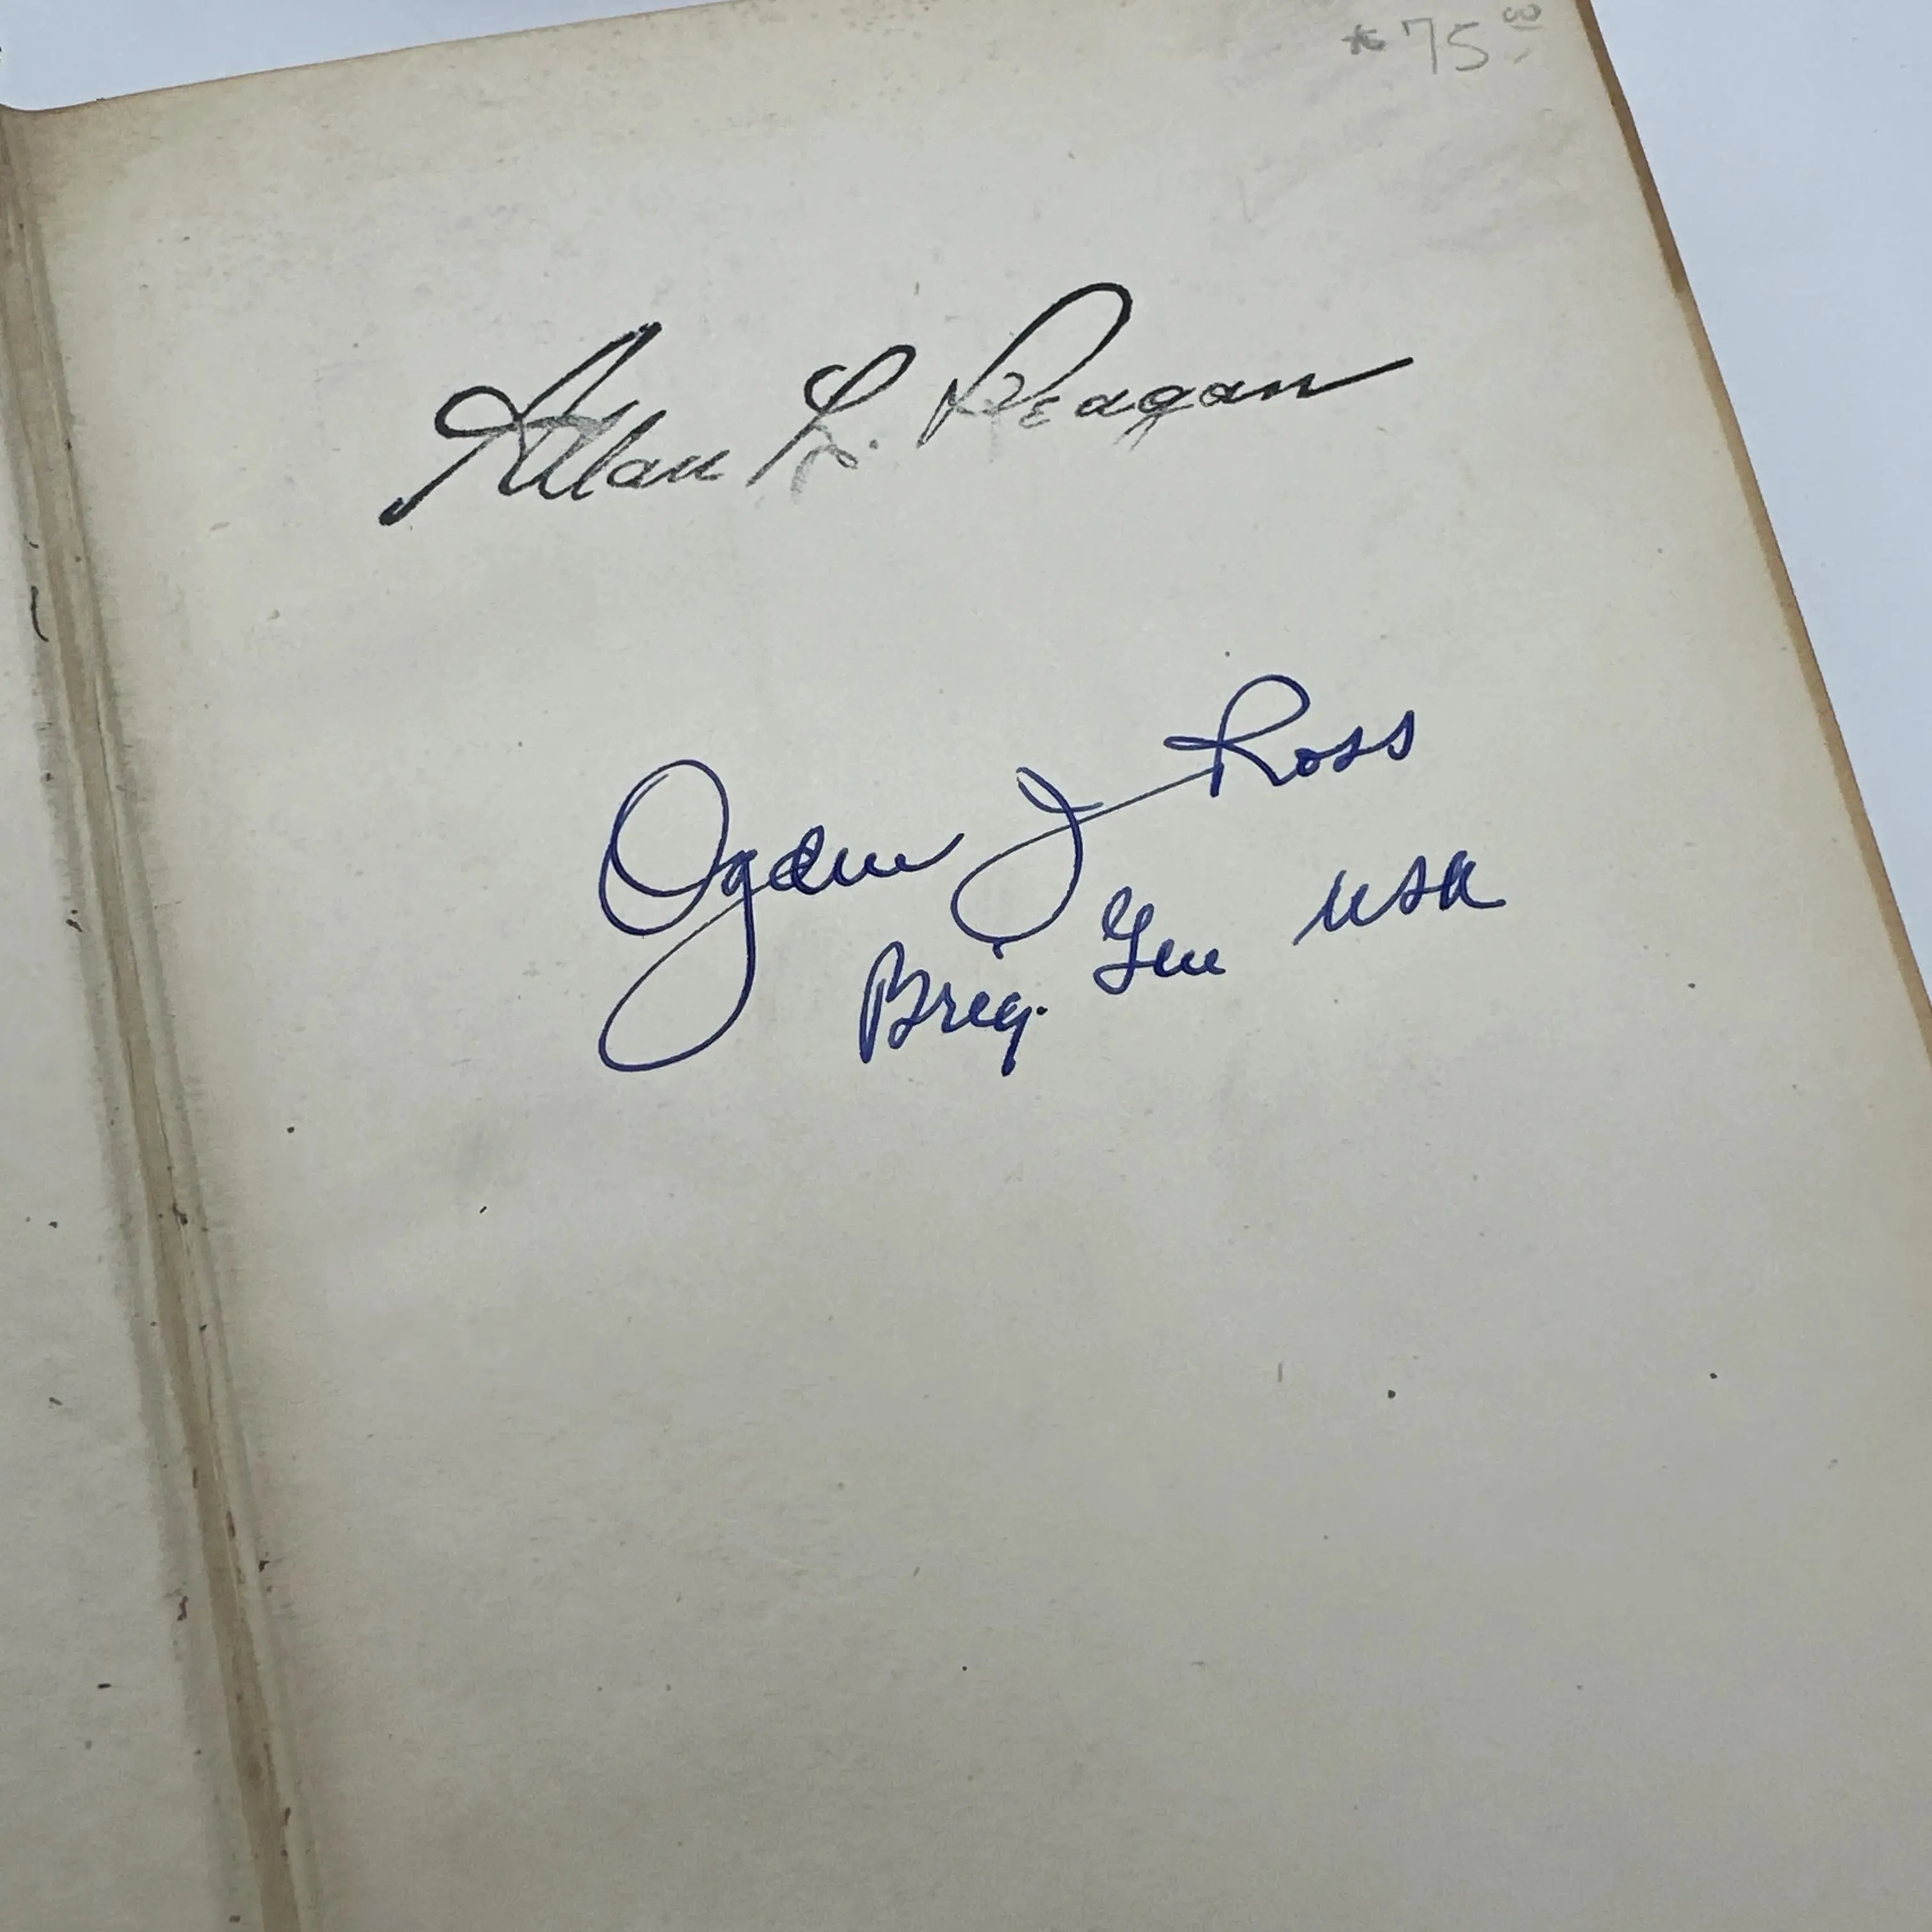 *75.00
Allan L. Reagan
Ogden J Ross
Brig. Gen USA